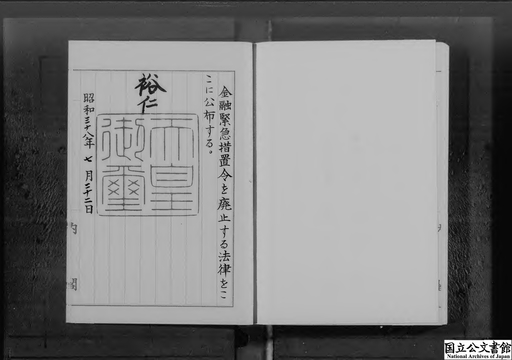 金融緊急措置令を廃止する法律をこ
こに公布する。
裕仁
天皇
御璽
昭和三十八年七月二十二日
内閣
国立公文書館
National Archives of Japan